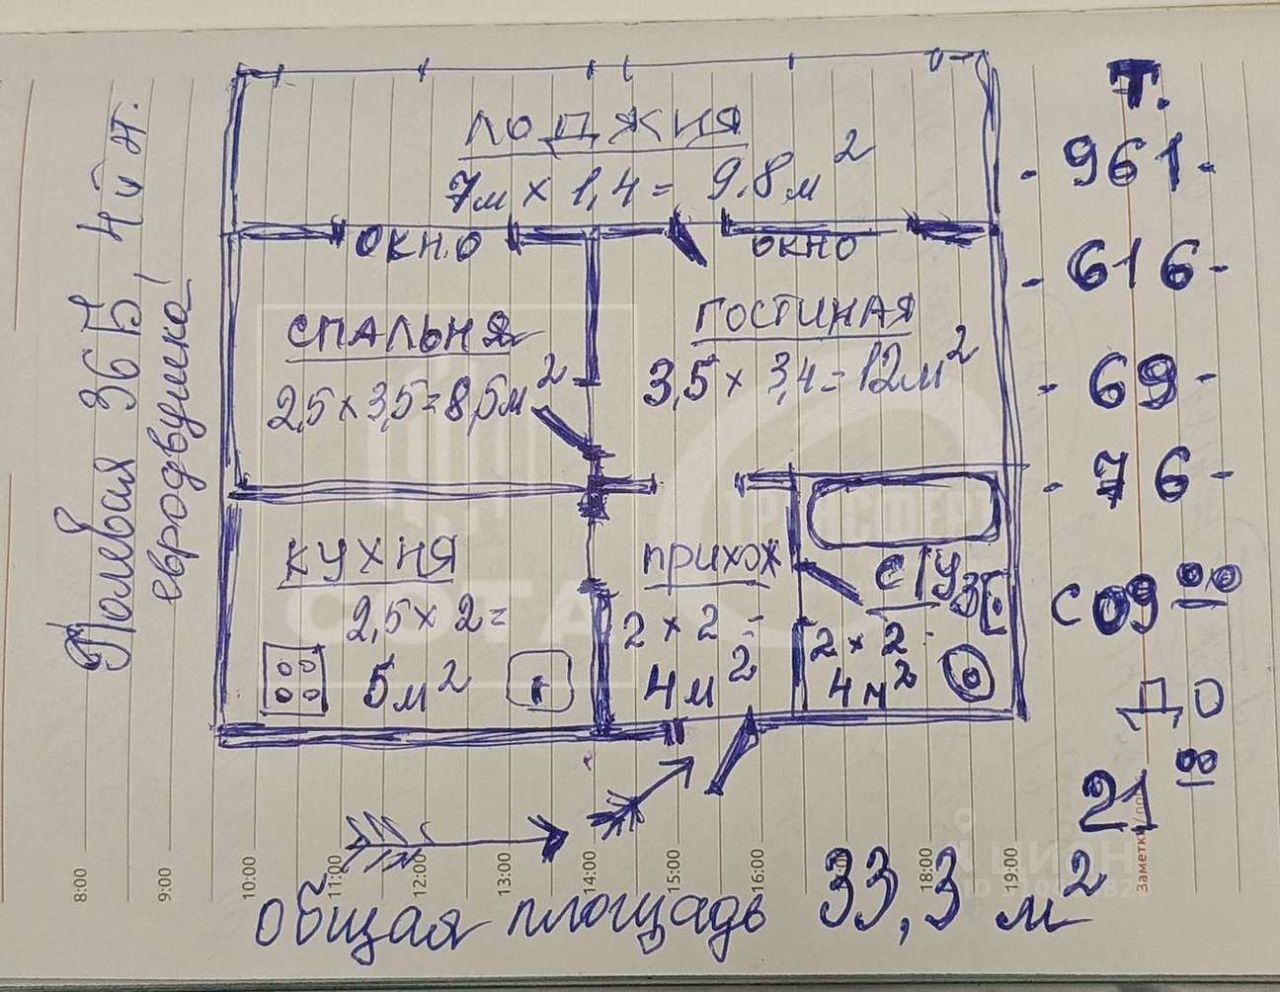 Полевая 36Б, 4й эт.
евродвушка
ЛОДЖИЯ
7м x 1,4 = 9,8м²
ОКНО
ОКНО
СПАЛЬНЯ
2,5 x 3,5 = 8,5м²
ГОСТИНАЯ
3,5 x 3,4 = 12м²
КУХНЯ
2,5 x 2 =
5м²
ПРИХОЖ
2 x 2 =
4м²
С/УЗ
2 x 2 =
4м²
общая площадь 33,3 м²
Т.
- 961 -
- 616 -
- 69 -
- 76 -
С 09 00
ДО
21 00
8:00
9:00
10:00
11:00
12:00
13:00
14:00
15:00
16:00
18:00
19:00
Заметки
СОТА
ЭКСПЕРТ
ЦИАН